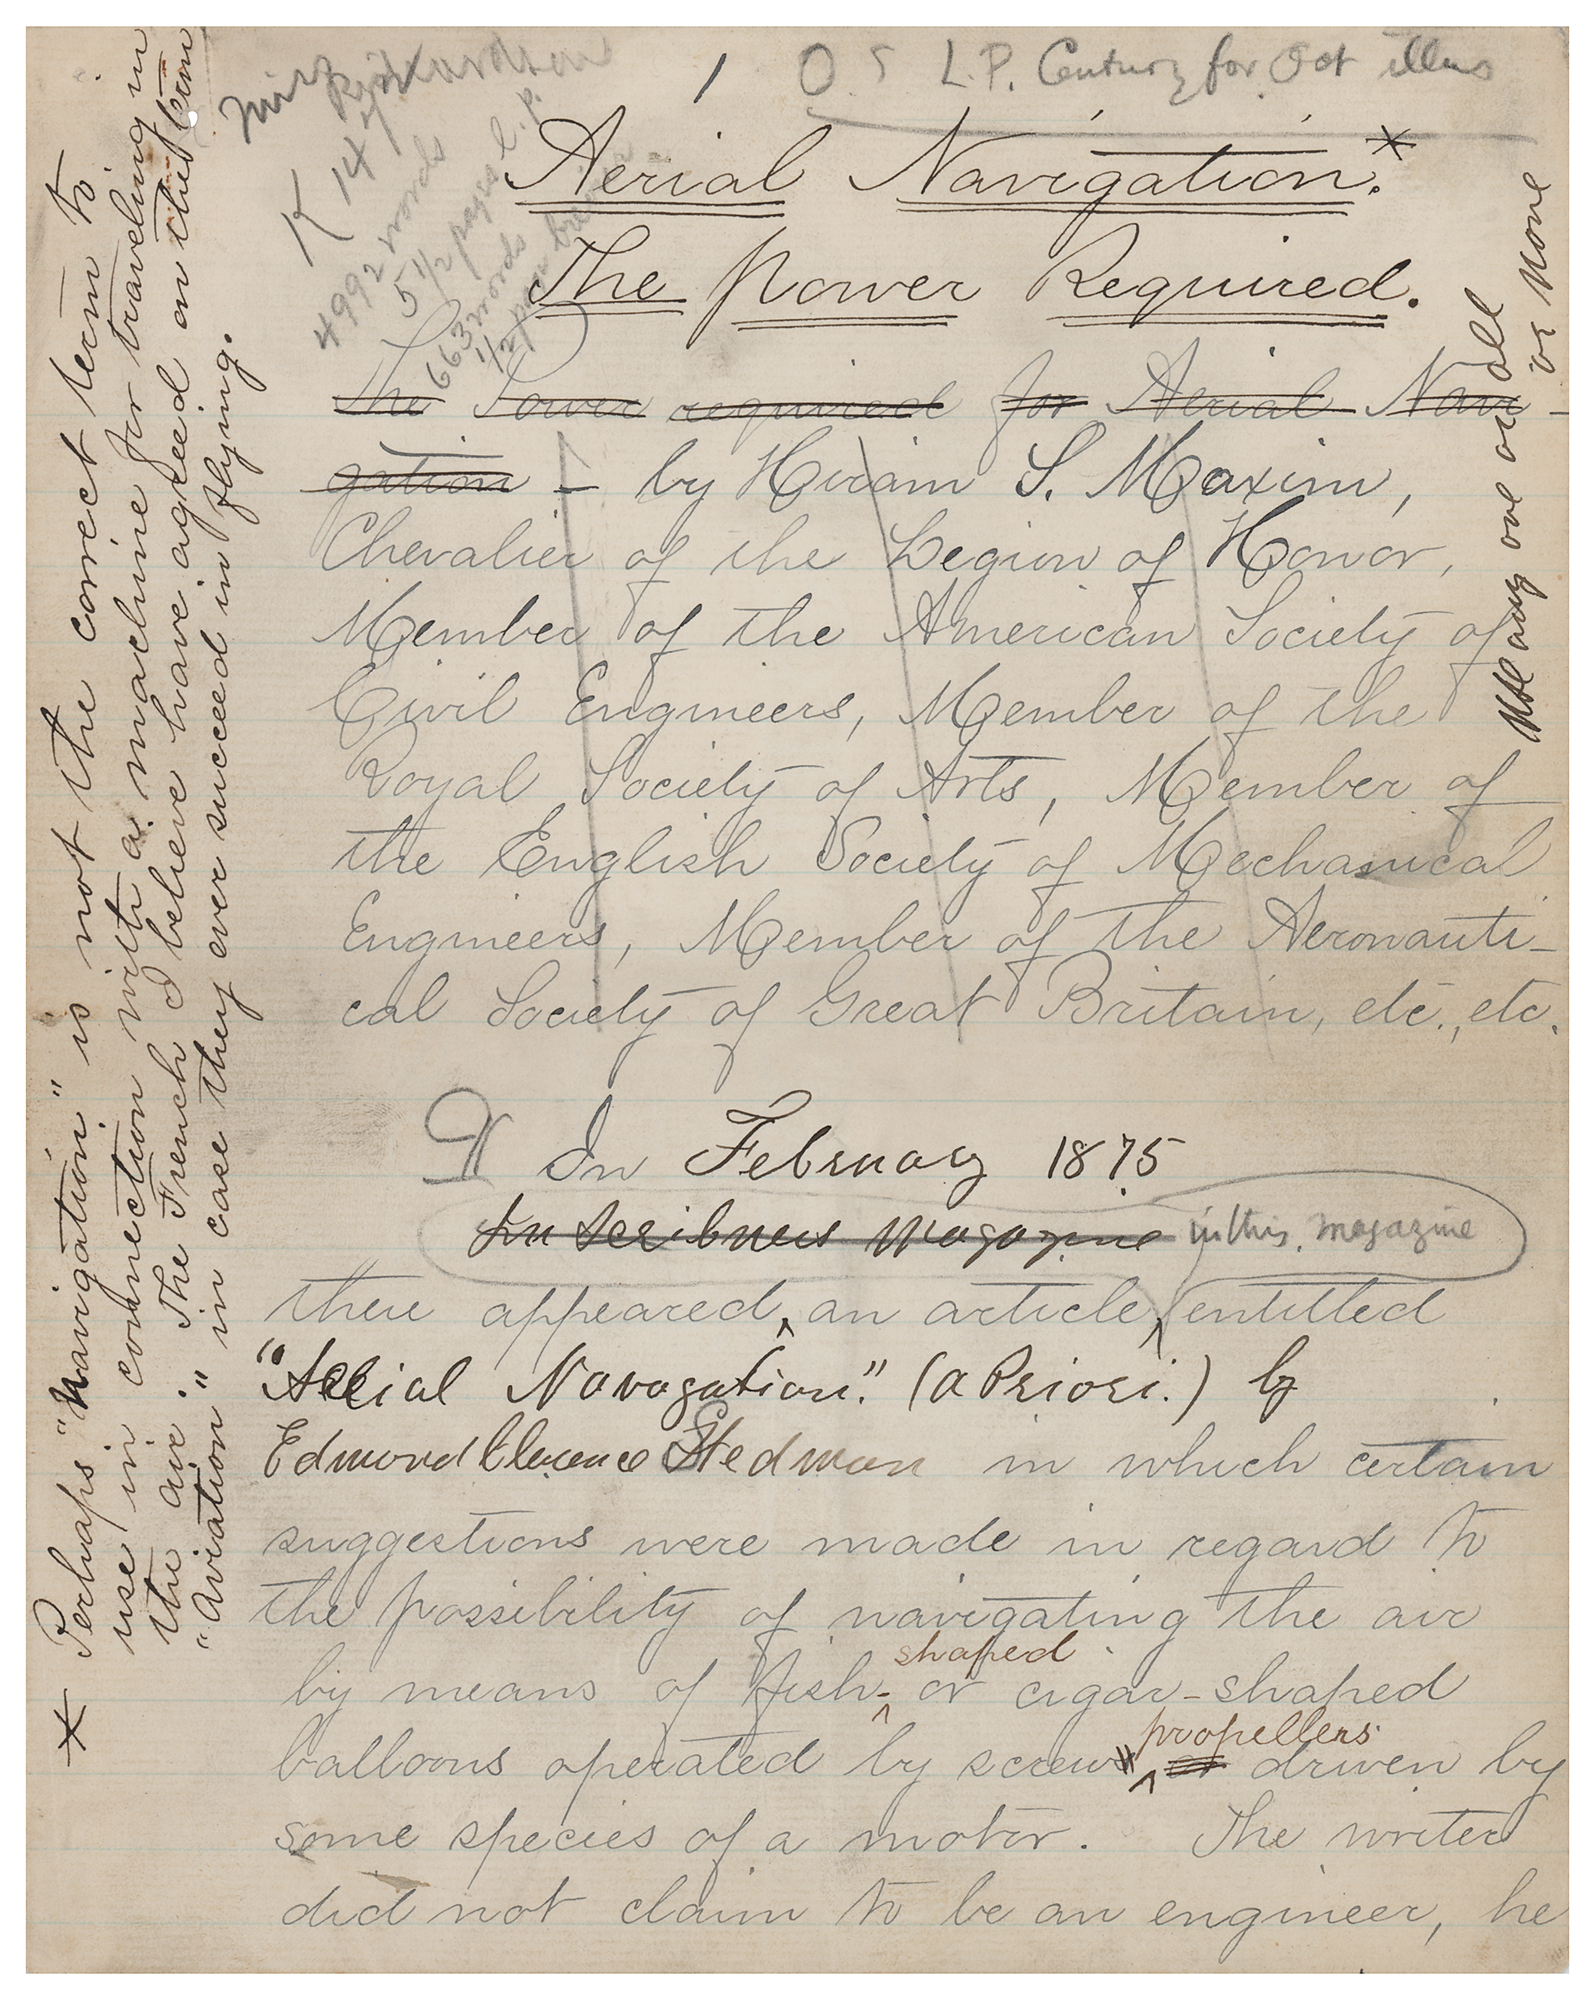 1
O S L.P. Century for Oct illus
Miss Richardson
K 147
4992 words
5 1/2 pages l.p.
663 words
1/2 page
Aerial Navigation.*
The Power Required.
The Power required for Aerial Navi-
gation - by Hiram S. Maxim,
Chevalier of the Legion of Honor,
Member of the American Society of
Civil Engineers, Member of the
Royal Society of Arts, Member of
the English Society of Mechanical
Engineers, Member of the Aeronauti-
cal Society of Great Britain, etc., etc.
any one or all
or none
¶ In February 1875
In Scribners Magazine in this magazine
there appeared, an article, entitled
"Aerial Navagation." (a Priori.) by
Edmond Clarence Stedman in which certain
suggestions were made in regard to
the possibility of navigating the air
shaped
by means of fish- or cigar-shaped
propellers
balloons operated by screws or driven by
some species of a motor. The writer
did not claim to be an engineer, he
* Perhaps "navigation" is not the correct term to
use in connection with a machine for traveling in
the air. The French I believe have agreed on the term
"Aviation" in case they ever succeed in flying.